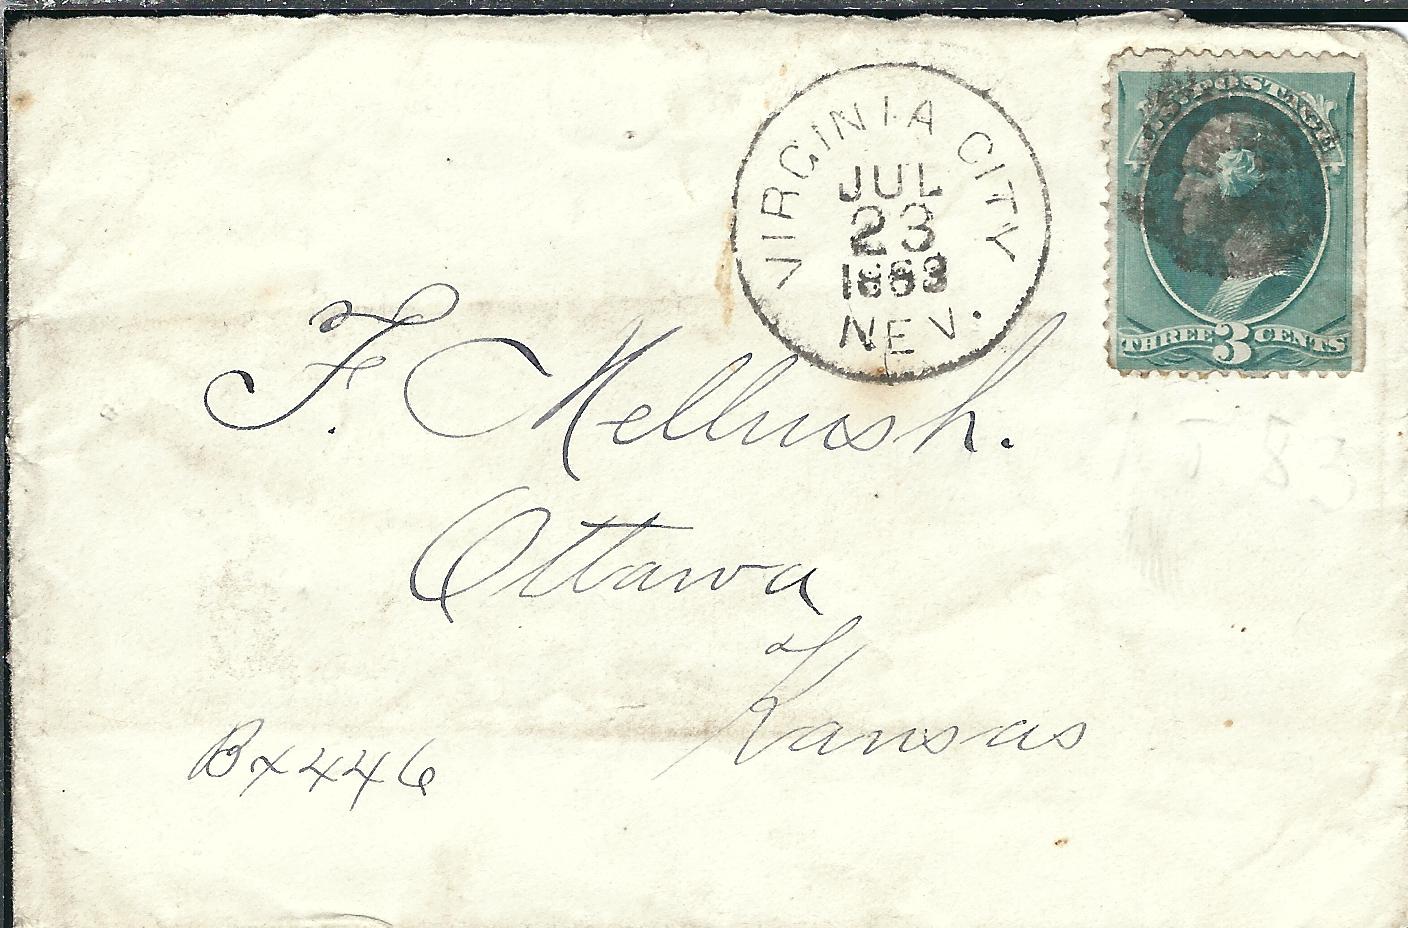 VIRGINIA CITY
JUL
23
1883
NEV.
U.S. POSTAGE
THREE 3 CENTS
F. Mellush.
Ottawa
Kansas
Bx 446